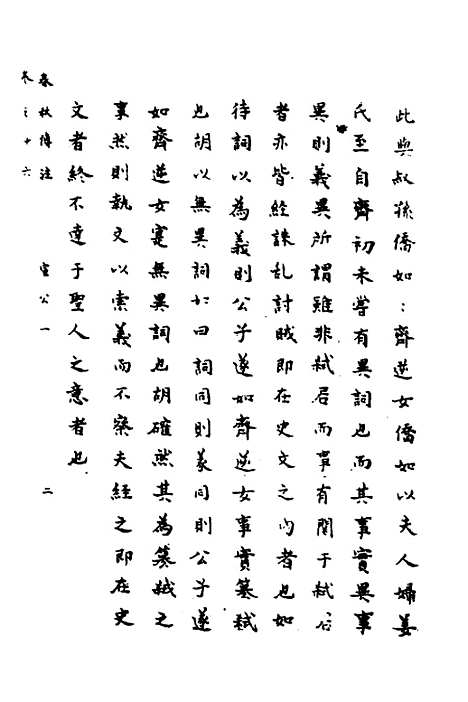 此與叔孫僑如:齊逆女僑如以夫人婦姜
氏至自齊初未嘗有異詞也而其事實異事
異則義異所謂雖非弒君而事有關于弒君
者亦皆經誅乱討賊即在史文之內者也如
待詞以為義則公子遂如齊逆女事實篡弒
也胡以無異詞如曰詞同則義同則公子遂
如齊逆女寔無異詞也胡確然其為篡弒之
事然則執文以索義而不察夫經之即在史
文者終不達于聖人之意者也
春秋傳注 宣公一 二
卷之十六